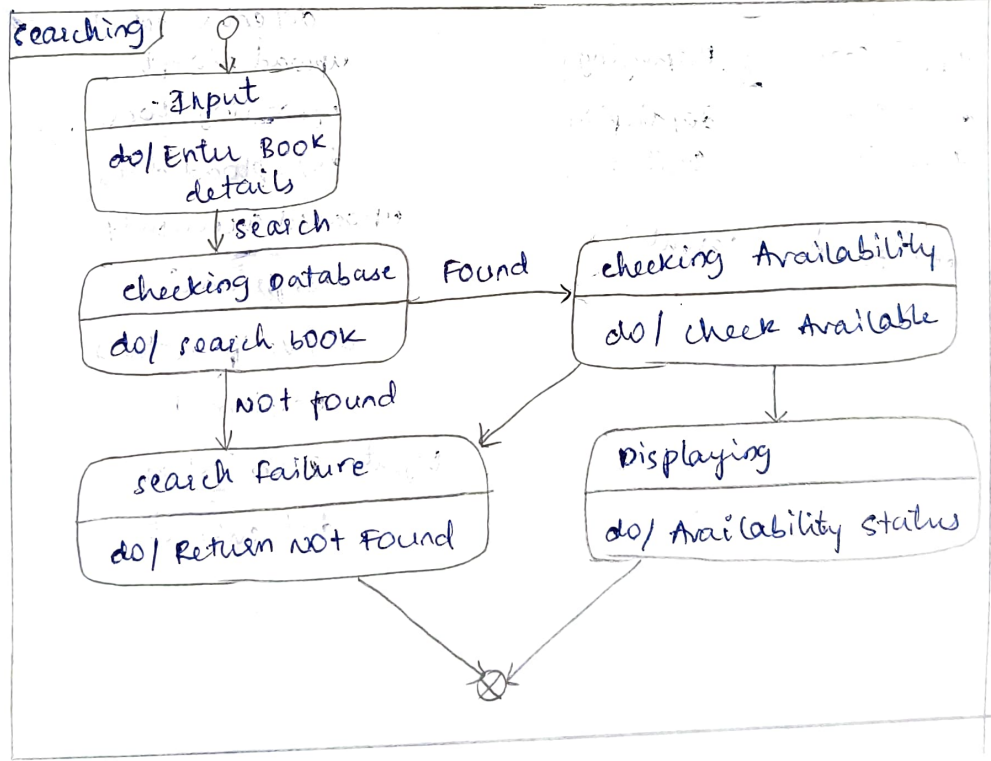 searching
Input
do/ Enter Book
details
search
checking Database
do/ search book
Found
checking Availability
do/ check Available
Not found
search failure
do/ Return Not Found
Displaying
do/ Availability Status